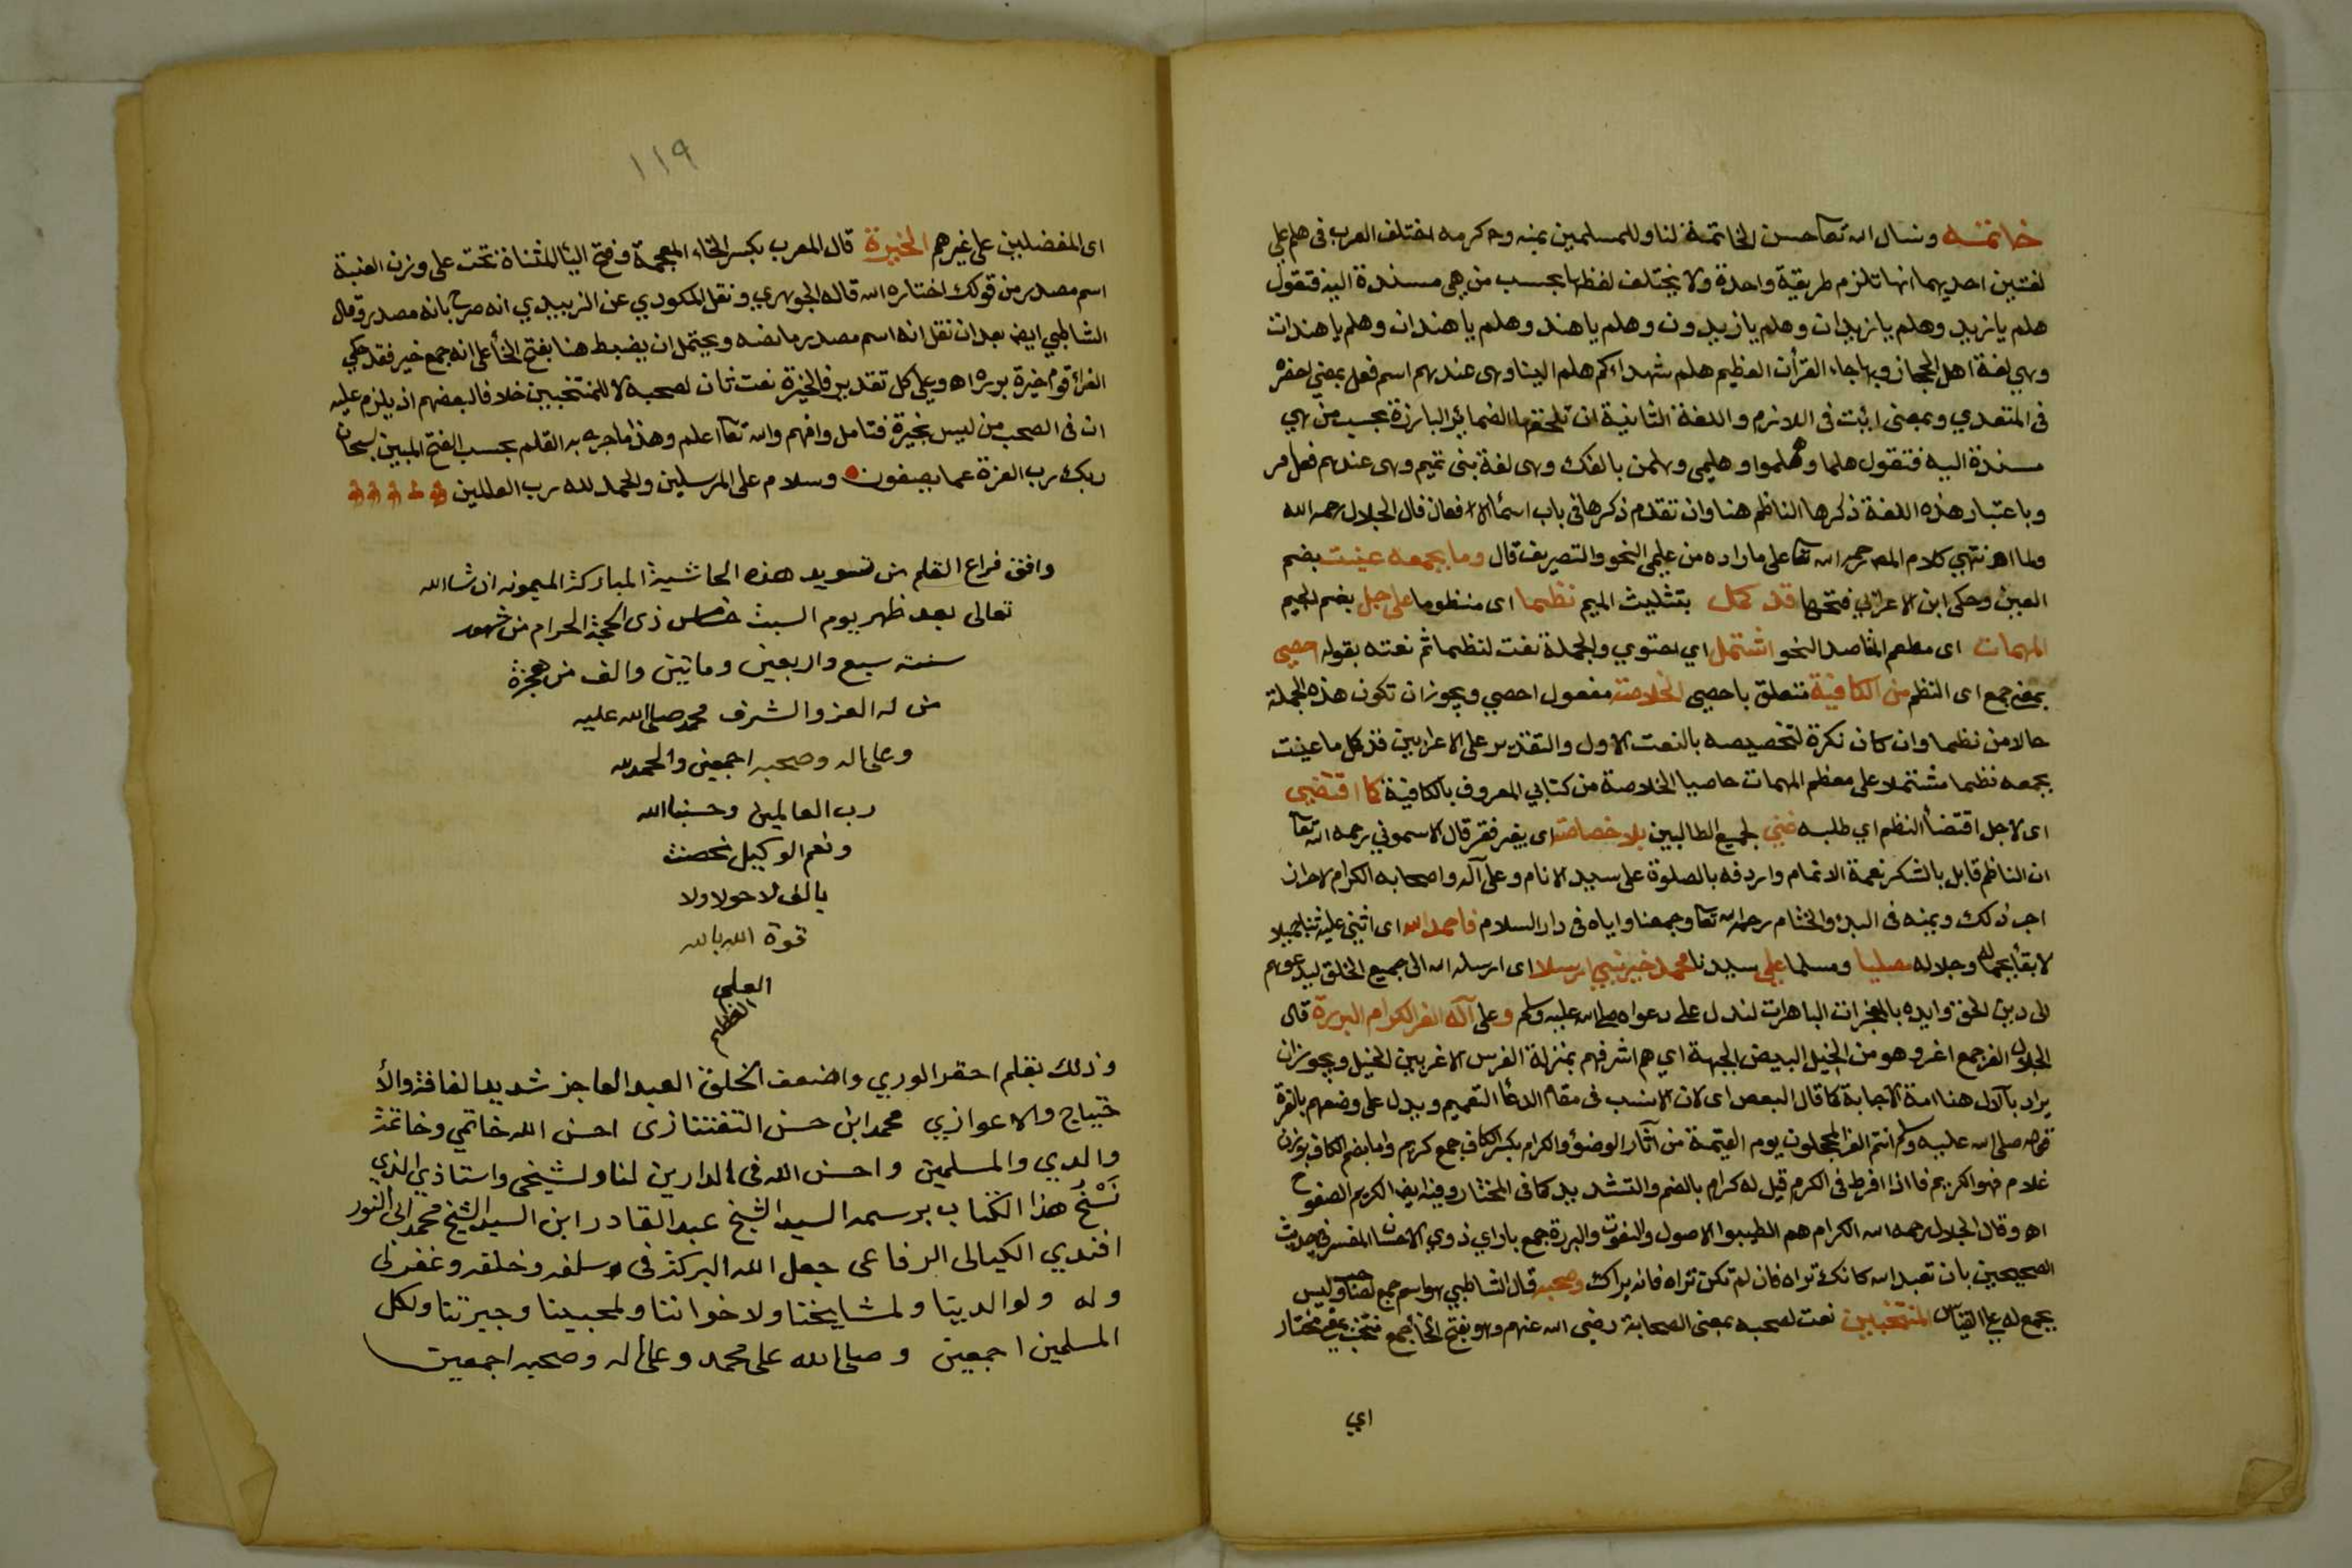 خاتمه ونسال الله تعا حسن الخاتمة لنا وللمسلمين بمنه وكرمه اختلف العرب فى هلم على
لغتين احديهما انها تلزم طريقية واحدة ولا يختلف لفظها بحسب من هى مسندة اليه فتقول
هلم يازيد وهلم يازيدان وهلم يازيدون وهلم ياهند وهلم ياهندان وهلم ياهندات
وهي لغة اهل الحجاز وبها جاء القرأن العظيم هلم شهداءكم هلم الينا وهى عندهم اسم فعل بمعنى احضر
فى المتعدي وبمعنى ائت فى اللازم واللغة الثانية ان تلحقها الضمائر البارزة بحسب من هي
مسندة اليه فتقول هلما وهلموا وهلمي وهلمن بالفك وهى لغة بنى تميم وهى عندهم فعل امر
وباعتبار هذه اللغة ذكرها الناظم هنا وان تقدم ذكرها فى باب اسمأ الافعال قال الجلال رحمه الله
ولما انتهي كلام المص رحمه الله تعا على ما اراده من علمى النحو والتصريف قال وما بجمعه عنيت بضم
العين وحكى ابن الاعرابي فتحها قد كمل بتثليث الميم نظما اى منظوما على جل بضم الجيم
المهمات اى معظم المقاصد النحو اشتمل اي احتوي والجملة نعت لنظما ثم نعته بقوله احصى
بمعنى جمع اى النظم من الكافية متعلق باحصى الخلاصه مفعول احصي ويجوز ان تكون هذه الجملة
حالا من نظما وان كان نكرة لتخصيصه بالنعت الاول والتقدير على الاعرابين قد كمل ما عنيت
بجمعه نظما مشتملا على معظم المهمات حاصيا الخلاصة من كتابي المعروف بالكافية كما اقتضى
اى لاجل اقتضأ النظم اي طلبه غني لجميع الطالبين بلا خصاصه اى بغير فقر قال الاسموني رحمه الله تعا
ان الناظم قابل بالشكر نعمة الاتمام واردفه بالصلوة على سيد الانام وعلى آله واصحابه الكرام لاحراز
اجر ذلك ويمنه فى البدؤ والختام رحمه الله تعا وجمعنا واياه فى دار السلام فاحمد الله اى اثنى عليه ثنا جميلا
لايقا بجماله وجلاله مصليا ومسلما على سيدنا محمد خير نبي ارسلا اى ارسله الله الى جميع الخلق ليدعوهم
الى دين الحق وايده بالمعجزات الباهرات لتدل على دعواه صلى الله عليه وسلم وعلى آله الغر الكرام البررة قال
الجلال الغر جمع اغر وهو من الخيل البيض الجبهة اي هم اشرفهم بمنزلة الفرس الاغر بين الخيل ويجوز ان
يراد بآلال هنا امة الاجابة كما قال البعض اى لان الانسب فى مقام الدعأ التعميم ويدل على وضعهم بالغرة
قوله صلى الله عليه وسلم انتم الغر المحجلون يوم القيمة من آثار الوضوء والكرام بكسر الكاف جمع كريم واما بضم الكاف بوزن
غلام فهو الكريم فاذا افرط فى الكرم قيل له كرام بالضم والتشديد كما فى المختار وفيه ايضا الكريم الصفوح
اه وقال الجلال رحمه الله الكرام هم الطيبوا الاصول والنعوت والبررة جمع بار اي ذوي الاحسان المفسر فى حديث
الصحيحين بان تعبد الله كانك تراه فان لم تكن تراه فانه يراك وصحبه قال الشاطبي هو اسم جمع لصاحب وليس
بجمع له على القياس المنتخبين نعت لصحبه بمعنى الصحابة رضى الله عنهم وهو بفتح الخأ جمع منتخب بمعنى مختار
اي
١١٩
اى المفضلين على غيرهم الخيرة قال المعرب بكسر الخاء المعجمة وفتح اليأ المثناة تحت على وزن العنبة
اسم مصدر من قولك اختاره الله قاله الجوهري ونقل المكودي عن الزبيدي انه صرح بانه مصدر وقال
الشاطبي ايض بعد ان نقل انه اسم مصدر مانصه ويحتمل ان يضبط هنا بفتح الخأ على انه جمع خير فقد حكي
الفرأ قوم خيرة بررة اه وعلى كل تقدير فالخيرة نعت ثان لصحبه لا للمنتخبين خلافا لبعضهم اذ يلزم عليه
ان فى الصحب من ليس بخيرة فتامل وافهم والله تعا اعلم وهذا ما جري به القلم بحسب الفتح المبين سبحان
ربك رب العزة عما يصفون وسلام على المرسلين والحمد لله رب العالمين
وافق فراغ القلم من تسويد هذه الحاشية المباركة الميمونه ان شاالله
تعالى بعد ظهر يوم السبت خامس ذى الحجة الحرام من شهور
سنته سبع واربعين وماتين والف من هجرة
من له العز والشرف محمد صلى الله عليه
وعلى اله وصحبه اجمعين والحمد لله
رب العالمين وحسبنا الله
ونعم الوكيل تحصنت
بالف لاحولا ولا
قوة الا بالله
العلي
العظيم
وذلك بقلم احقر الوري واضعف الخلق العبد العاجز شديد الفاقة والأ
حتيياج والاعوازي محمد ابن حسن التفتتازى احسن الله خاتمي وخاتمة
والدي والمسلمين واحسن الله فى الدارين لنا ولشيخى واستاذي الذي
نَسْخُ هذا الكتاب برسمه السيد الشيخ عبد القادر ابن السيد الشيخ محمد ابى النور
افندي الكيالى الرفاعى جعل الله البركة فى سلفه وخلفه وغفر لى
وله ولوالديتا ولمشايخنا ولاخواننا ولمحبينا وجيرتنا ولكل
المسلمين اجمعين وصلى الله على محمد وعلى اله وصحبه اجمعين